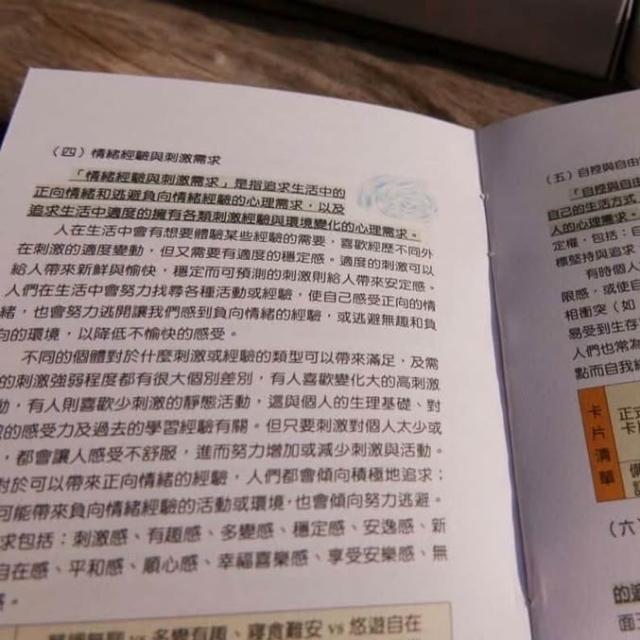 （四）情緒經驗與刺激需求
「情緒經驗與刺激需求」是指追求生活中的
正向情緒和逃避負向情緒經驗的心理需求，以及
追求生活中適度的擁有各類刺激經驗與環境變化的心理需求。
人在生活中會有想要體驗某些經驗的需要，喜歡經歷不同外
在刺激的適度變動，但又需要有適度的穩定感。適度的刺激可以
給人帶來新鮮與愉快，穩定而可預測的刺激則給人帶來安定感。
人們在生活中會努力找尋各種活動或經驗，使自己感受正向的情
緒，也會努力逃開讓我們感到負向情緒的經驗，或逃避無趣和負
向的環境，以降低不愉快的感受。
不同的個體對於什麼刺激或經驗的類型可以帶來滿足，及需
的刺激強弱程度都有很大個別差別，有人喜歡變化大的高刺激
動，有人則喜歡少刺激的靜態活動，這與個人的生理基礎、對
的感受力及過去的學習經驗有關。但只要刺激對個人太少或
，都會讓人感受不舒服，進而努力增加或減少刺激與活動。
對於可以帶來正向情緒的經驗，人們都會傾向積極地追求；
可能帶來負向情緒經驗的活動或環境，也會傾向努力逃避。
求包括：刺激感、有趣感、多變感、穩定感、安逸感、新
自在感、平和感、順心感、幸福喜樂感、享受安樂感、無
感。
vs 多變有趣、寢食難安 vs 悠遊自在
（五）自控與自由
「自控與自由
自己的生活方式
人的心理需求。
定權，包括：自
標堅持與追求
有時個人
限感，或使自
相衝突（如
易受到生存
人們也常為
點而自我
卡片清單
正
卡
（六
的
面